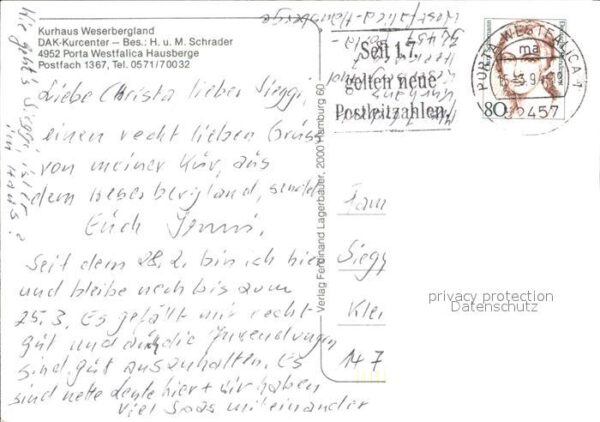 Kurhaus Weserbergland
DAK-Kurcenter – Bes.: H. u. M. Schrader
4952 Porta Westfalica Hausberge
Postfach 1367, Tel. 0571/70032
Liebe Christa lieber Siggi,
einen recht lieben Gruss
von meiner Kur, aus
dem Weserbergland, sendet
Euch
Seit dem 28.2. bin ich hier
und bleibe noch bis zum
25.3. Es gefällt mir recht
gut und auch die Anwendungen
sind gut auszuhalten. Es
sind nette Leute hier + wir haben
viel Spas miteinander
Wie geht's Siggi
im Haus?
Verlag Ferdinand Lagerbauer, 2000 Hamburg 60
Westfalica-Hausberge
32457
Seit 1.7.
gelten neue
Postleitzahlen
PORTA WESTFALICA 1
ma
32457
80
Fam
Siegg
Klei
14 7
privacy protection
Datenschutz